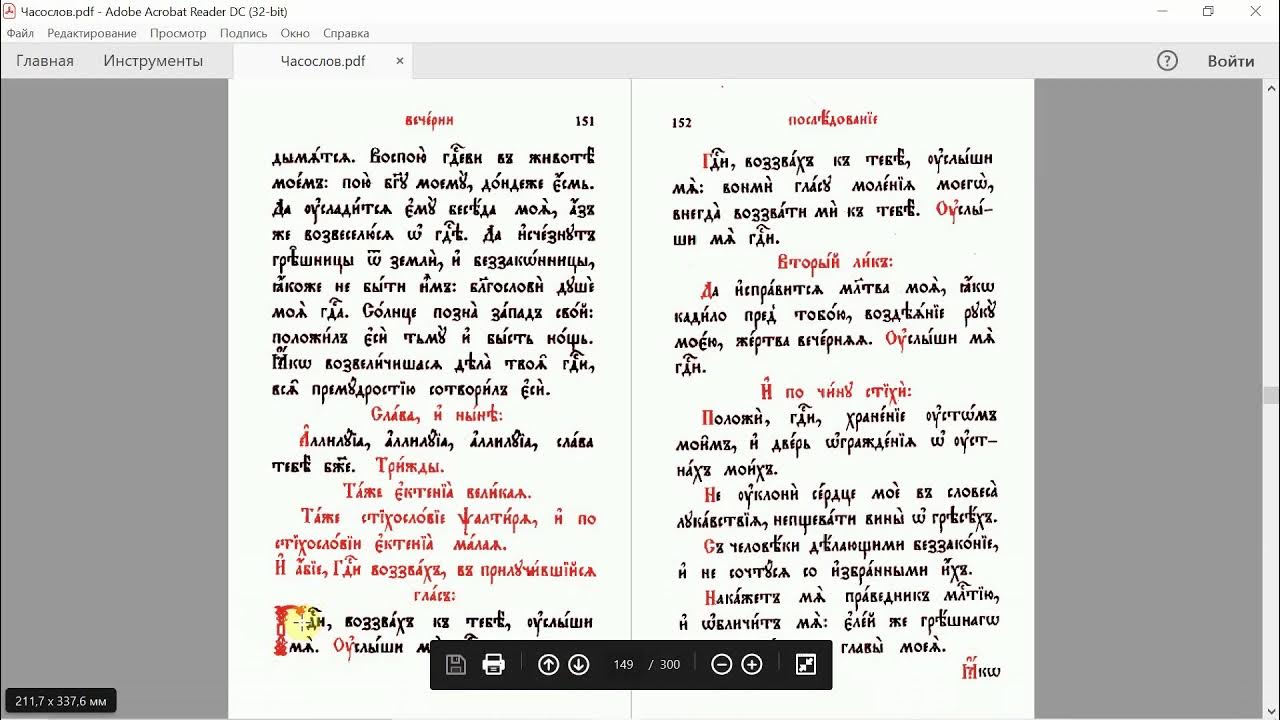 Часослов.pdf - Adobe Acrobat Reader DC (32-bit)
Файл Редактирование Просмотр Подпись Окно Справка
Главная Инструменты Часослов.pdf × ? Войти
вече́рни 151
дымѧ́тсѧ. Воспою̀ гдⷭ҇еви въ животѣ̀
мое́мъ: пою̀ бг҃ꙋ моемꙋ̀, до́ндеже є҆́смь.
Да ᲂу҆слади́тсѧ є҆мꙋ̀ бесѣ́да моѧ̀, а҆́зъ
же возвеселю́сѧ ѡ҆ гдⷭ҇ѣ. Да и҆сче́знꙋтъ
грѣ̑шницы ѿ землѝ, и҆ беззакѡ́нницы,
ꙗ҆́коже не бы́ти и҆̀мъ: блгⷭ҇ословѝ дꙋшѐ
моѧ̀ гдⷭ҇а. Со́лнце позна̀ за́падъ сво́й:
положи́лъ є҆сѝ тьмꙋ̀ и҆ бы́сть но́щь.
Ꙗ҆́кѡ возвели́чишасѧ дѣла̀ твоѧ̑ гдⷭ҇и,
всѧ̑ премꙋ́дростїю сотвори́лъ є҆сѝ.
Сла́ва, и҆ ны́нѣ:
А҆ллилꙋ́їа, а҆ллилꙋ́їа, а҆ллилꙋ́їа, сла́ва
тебѣ̀ бж҃е. Три́жды.
Та́же є҆ктенїа̀ вели́каѧ.
Та́же стїхосло́вїе ѱалти́рѧ, и҆ по
стїхосло́вїи є҆ктенїа̀ ма́лаѧ.
И҆ а҆́бїе, Гдⷭ҇и воззва́хъ, въ прилꙋчи́вшїйсѧ
гла́съ:
Гдⷭ҇и, воззва́хъ къ тебѣ̀, ᲂу҆слы́ши
мѧ̀. Оу҆слы́ши
152 послѣ́дованїе
Гдⷭ҇и, воззва́хъ къ тебѣ̀, ᲂу҆слы́ши
мѧ̀: вонмѝ гла́сꙋ моле́нїѧ моегѡ̀,
внегда̀ воззва́ти мѝ къ тебѣ̀. Оу҆слы́-
ши мѧ̀ гдⷭ҇и.
Вторы́й ли́къ:
Да и҆спра́витсѧ мл҃тва моѧ̀, ꙗ҆́кѡ
кади́ло пред̾ тобо́ю, воздѣѧ́нїе рꙋкꙋ̀
моє́ю, же́ртва вече́рнѧѧ. Оу҆слы́ши мѧ̀
гдⷭ҇и.
И҆ по чи́нꙋ стїхѝ:
Положѝ, гдⷭ҇и, хране́нїе ᲂу҆стѡ́мъ
мои̑мъ, и҆ две́рь ѡ҆гражде́нїѧ ѡ҆ ᲂу҆ст-
на́хъ мои́хъ.
Не ᲂу҆клонѝ се́рдце моѐ въ словеса̀
лꙋка́вствїѧ, непщева́ти вины̀ ѡ҆ грѣсѣ́хъ.
Съ человѣ́ки дѣ́лающими беззако́нїе,
и҆ не сочтꙋ́сѧ со и҆збра́нными и҆́хъ.
Нака́жетъ мѧ̀ пра́ведникъ млⷭ҇тїю,
и҆ ѡ҆бличи́тъ мѧ̀: є҆ле́й же грѣ́шнагѡ
главы̀ моеѧ̀.
Ꙗ҆́кѡ
149 / 300
211,7 x 337,6 мм